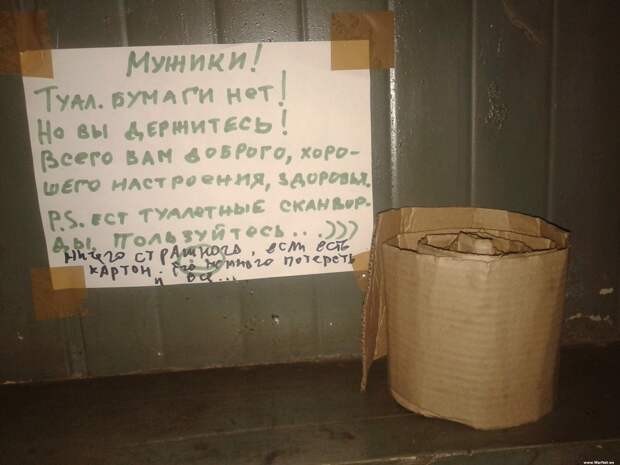 Мужики!
Туал. бумаги нет!
Но вы держитесь!
Всего вам доброго, хоро-
шего настроения, здоровья.
P.S. ест туалетные сканвор-
ды, пользуйтесь...)))
ничего страшного, если есть
картон. его немного потереть
и все...
www.Warnet.ws